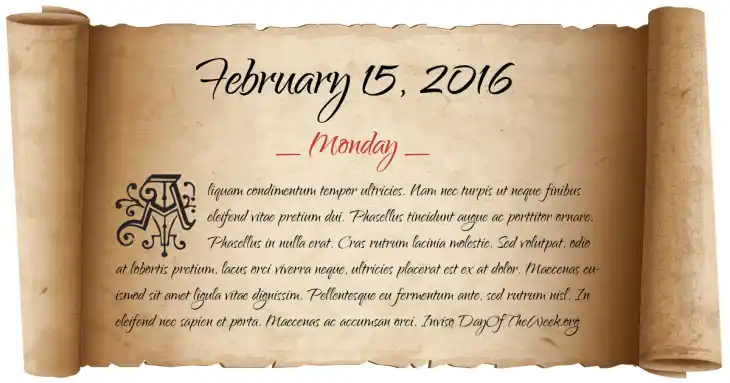 February 15, 2016
_ Monday _
Aliquam condimentum tempor ultricies. Nam nec turpis ut neque finibus
eleifend vitae pretium dui. Phasellus tincidunt augue ac porttitor ornare.
Phasellus in nulla erat. Cras rutrum lacinia molestie. Sed volutpat, odio
at lobortis pretium, lacus orci viverra neque, ultricies placerat est ex at dolor. Maecenas eu-
ismod sit amet ligula vitae dignissim. Pellentesque eu fermentum ante, sed rutrum nisl. In
eleifend nec sapien et porta. Maecenas ac accumsan orci. Invise DayOfTheWeek.org